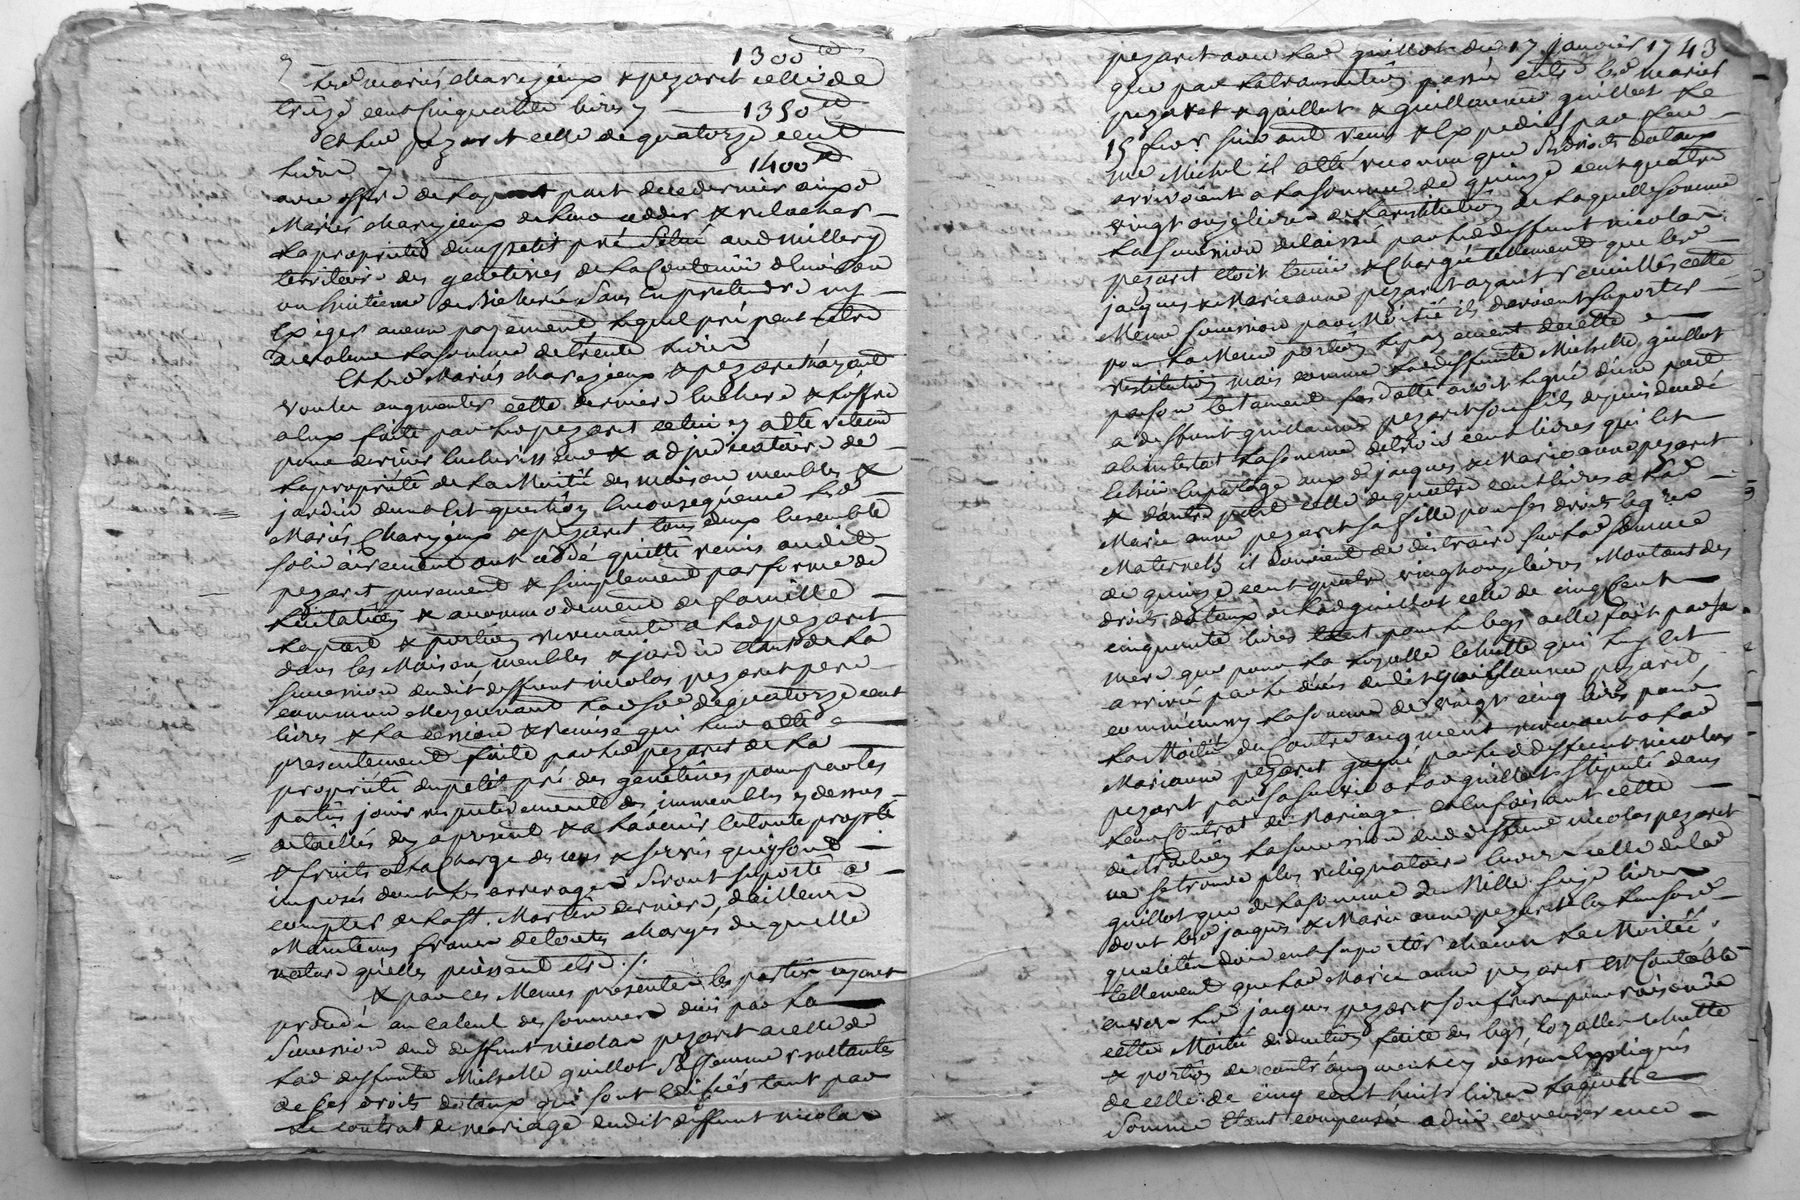 1300
Led mariés Charezieux & pezaret celle de
treize cent cinquante livres 1350
Et led pezaret celle de quatorze cent
livres 1400
avec offre de la part de ce dernier auxd
Mariés Charezieux de leur ceder & relacher
la propriété d'un petit pré situé aud Millery
territoire des genetines de la Contenüe d'environ
un huitieme de Bicherée sans en pretendre ny
Exiger aucun payement lequel pré peut etre
de valeur la somme de trente livres
Et led Mariés Charezieux & pezaret n'ayant
voulu augmenter cette derniere Enchere & l'offre
a eux faite par led pezaret celui cy a été retenu
pour dernier Encherisseur & adjudicataire de
la propriété de la Moitié des maison meubles &
jardin dont Est question En consequence led
Mariés Charezieux & pezaret tous deux Ensemble
solidairement ont cedé quitté remis audit
pezaret purement & simplement par forme de
licitation & accommodement de famille
la part & portion revenante a lad pezaret
dans les Maison, meubles & jardin Etant de la
succession dudit deffunt nicolas pezaret pere
commun Moyennant lad so.e de quatorze cent
livres & la cession & remise qui leur a été
presentement faite par led pezaret de la
propriété du petit pré des genetines pour par les
parties jouir respectivement des immeubles cy dessus
detaillés dez a present & a l'avenir En toute propriété
& fruits a la Charge des cens & servis qui y sont
imposés dont les arrerages seront suporté a
compter de la St. Martin dernier, d'ailleurs
Maintenus francs de toutes charges de quelle
nature qu'elles puissent etre ./.
& par ces Memes presentes les parties ayant
procedé au calcul des sommes dües par la
Succession dud deffunt nicolas pezaret a celle de
lad deffunte Michelle guillot sa femme resultantes
de ses droits dotaux qui sont Edifiés tant par
le contrat de mariage dudit deffunt nicolas
pezaret avec lad guillot du 17 janvier 1743
que par la transaction passée entre led mariés
pezaret & guillot & guillaume guillot le
15 fevr suivant receu & Expedié par feu
me Michel il a été reconnu que ses droits dotaux
arrivoient a la somme de quinze cent quatre
vingt onze livres de la restitution de laquelle somme
la succession delaissée par led deffunt nicolas
pezaret etoit tenüe & Chargée tellement que led
jacques & Marie anne pezaret ayant recueillis cette
Meme succession par Moitié ils devoient suporter
pour la Meme portion le payement de cette
restitution mais comme lad deffunte Michelle guillot
par son testament a legué d'une part
a deffunt guillaume pezaret son fils depuis decedé
ab intestat la somme de trois cent livres qui Est
Echüe En partage aux d jacques & Marie anne pezaret
& d'autre part celle de quatre cent livres a lad
Marie anne pezaret sa fille pour ses droits legres
Maternels il convient de distraire sur lad somme
de quinze cent quatre vingt onze livres Montant des
droits dotaux de lad guillot celle de cinq cent
cinquante livres tant pour le legs a elle fait par sa
mere que pour la Echutte qui luy est
arrivée par le déces dudit guillaume pezaret
la somme de vingt cinq livres pour
la Moitié du Contre augment revenant a lad
Marianne pezaret gagné par led deffunt nicolas
pezaret par sa survie a lad guillot stipulé dans
leur Contrat de Mariage En faisant cette
deduction la succession dud deffunt nicolas pezaret
ne se trouve plus reliquataire Envers celle de lad
guillot que de la somme de Mille seize livres
dont led jacques & Marie anne pezaret
qualités doivent suporter chacun la Moitié
tellement que lad Marie anne pezaret est Comptable
envers led jacques pezaret son frere pour raison de
cette Moitié deduction faite des legs Echutte
& portion de contre augment cy dessus Expliqués
de celle de cinq cent huit livres laquelle
somme Etant compensée a düe concurrence